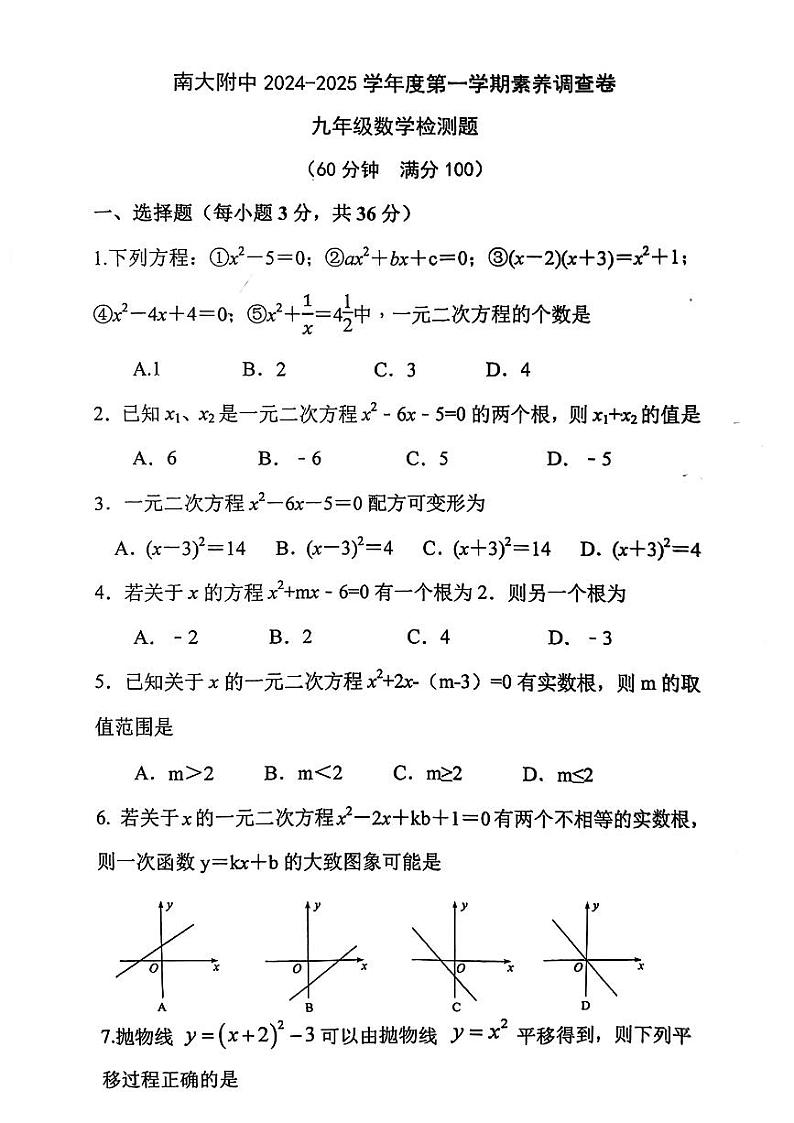 南大附中 2024-2025 学年度第一学期素养调查卷
九年级数学检测题
（60 分钟　满分 100）
一、选择题（每小题 3 分，共 36 分）
1.下列方程：①x²－5＝0；②ax²＋bx＋c＝0；③(x－2)(x＋3)＝x²＋1；
④x²－4x＋4＝0；⑤x²＋1/x＝4 1/2中，一元二次方程的个数是
A.1　B．2　C．3　D．4
2．已知 x₁、x₂ 是一元二次方程 x²﹣6x﹣5=0 的两个根，则 x₁+x₂ 的值是
A．6　B．﹣6　C．5　D．﹣5
3．一元二次方程 x²－6x－5＝0 配方可变形为
A．(x－3)²＝14　B．(x－3)²＝4　C．(x＋3)²＝14　D．(x＋3)²＝4
4．若关于 x 的方程 x²+mx﹣6=0 有一个根为 2．则另一个根为
A．﹣2　B．2　C．4　D．﹣3
5．已知关于 x 的一元二次方程 x²+2x-（m-3）=0 有实数根，则 m 的取
值范围是
A．m＞2　B．m＜2　C．m≥2　D．m≤2
6. 若关于 x 的一元二次方程 x²－2x＋kb＋1＝0 有两个不相等的实数根，
则一次函数 y＝kx＋b 的大致图象可能是
y　y　y　y
O　x　O　x　O　x　O　x
A　B　C　D
7.抛物线 y=(x+2)²−3 可以由抛物线 y=x² 平移得到，则下列平
移过程正确的是